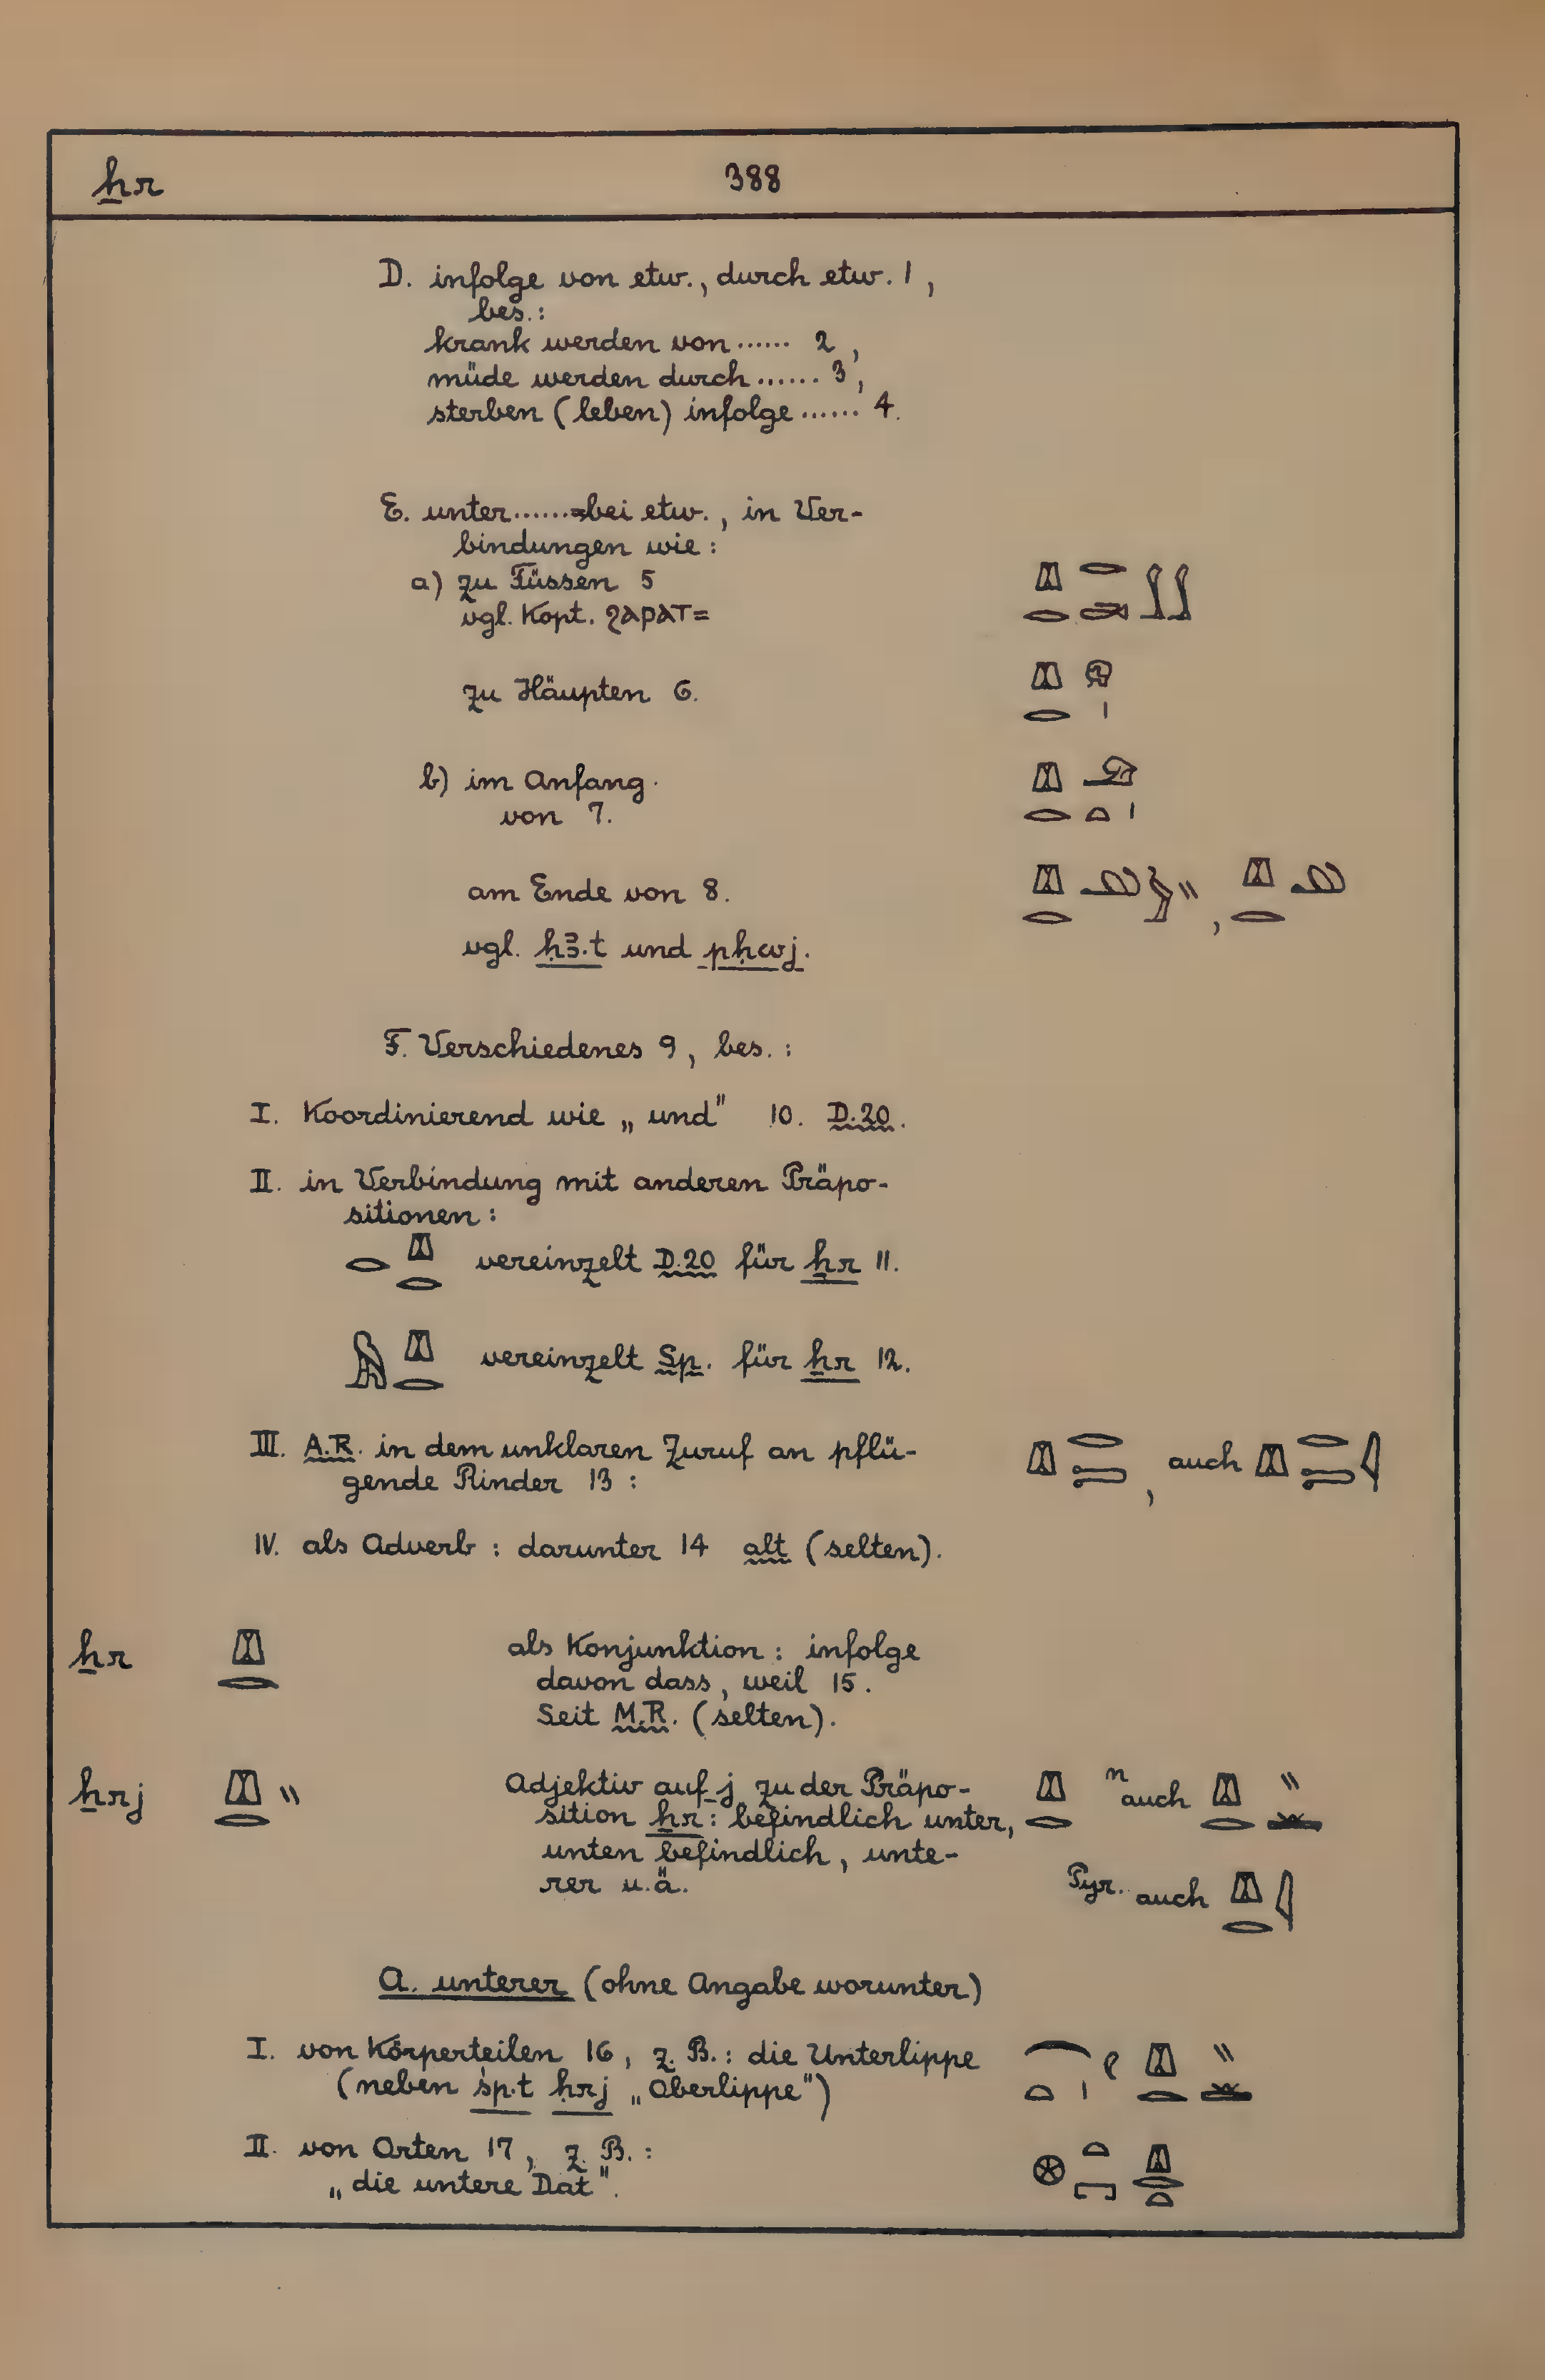 ẖr 388
D. infolge von etw., durch etw. 1,
bes.:
krank werden von ...... 2,
müde werden durch ...... 3,
sterben (leben) infolge ...... 4.
E. unter ...... = bei etw., in Ver-
bindungen wie:
a) zu Füssen 5
vgl. Kopt. ϩⲁⲣⲁⲧ=
zu Häupten 6.
b) im Anfang
von 7.
am Ende von 8.
vgl. ḥꜣ.t und pḥwj.
F. Verschiedenes 9, bes.:
I. Koordinierend wie „und" 10. D.20.
II. in Verbindung mit anderen Präpo-
sitionen:
vereinzelt D.20 für ẖr 11.
vereinzelt Sp. für ẖr 12.
III. A.R. in dem unklaren Zuruf an pflü-
gende Rinder 13: , auch
IV. als Adverb: darunter 14 alt (selten).
ẖr als Konjunktion: infolge
davon dass, weil 15.
Seit M.R. (selten).
ẖrj Adjektiv auf j zu der Präpo- n auch
sition ẖr: befindlich unter,
unten befindlich, unte-
rer u.ä. Pyr. auch
A. unterer (ohne Angabe worunter)
I. von Körperteilen 16, z. B.: die Unterlippe
(neben śp.t ḥrj „Oberlippe")
II. von Orten 17, z. B.:
„die untere Dat".